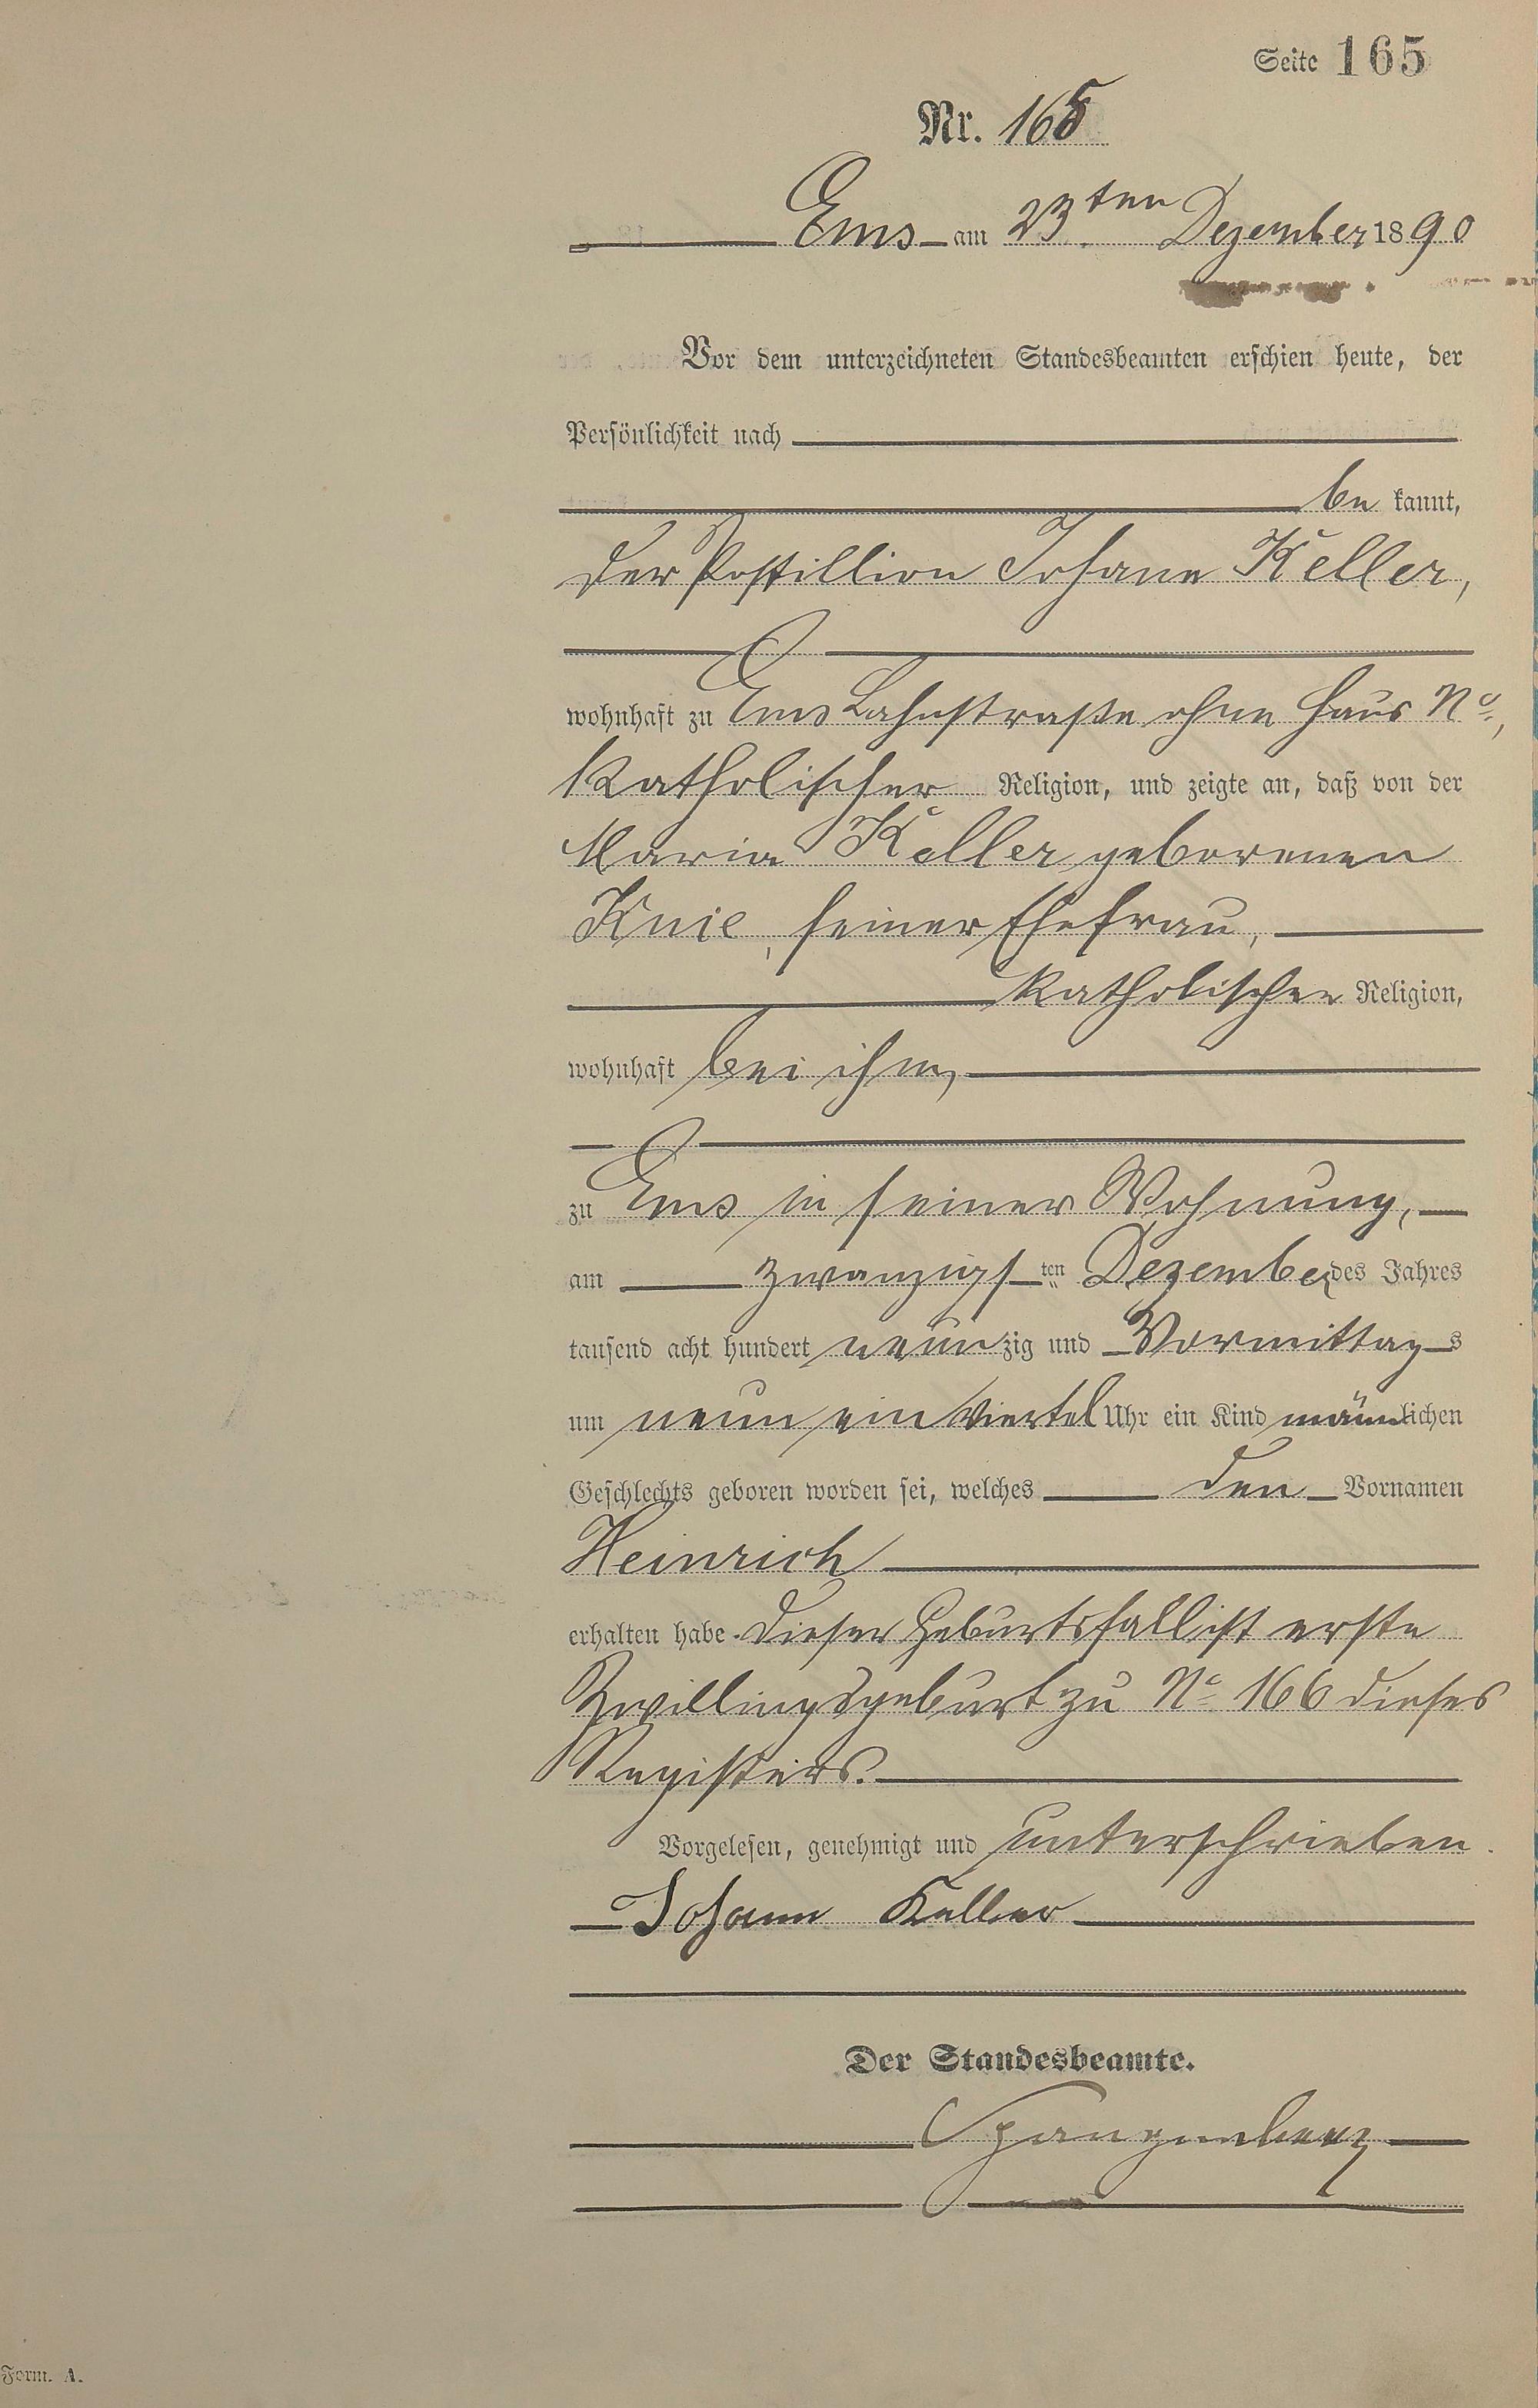 Seite 165
Nr. 165
Ems am 23ten Dezember 1890
Vor dem unterzeichneten Standesbeamten erschien heute, der
Persönlichkeit nach
be kannt,
der Postillion Johann Keller,
wohnhaft zu Ems Lahnstraße ohne Haus No,
katholischer Religion, und zeigte an, daß von der
Maria Keller geborenen
Knie, seiner Ehefrau,
katholischer Religion,
wohnhaft bei ihm,
zu Ems in seiner Wohnung,
am zwanzigsten Dezember des Jahres
tausend acht hundert neunzig und Vormittags
um neun ein viertel Uhr ein Kind männlichen
Geschlechts geboren worden sei, welches den Vornamen
Heinrich
erhalten habe. Dieser Geburtsfall ist erste
Zwillingsgeburt zu No 166 dieses
Registers.
Vorgelesen, genehmigt und unterschrieben.
Johann Keller
Der Standesbeamte.
Spangenberg
Form. A.